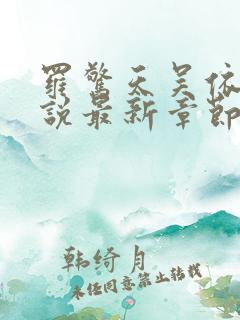 罪惊天吴依
说最新章节
韩绮月
未经同意禁止转载